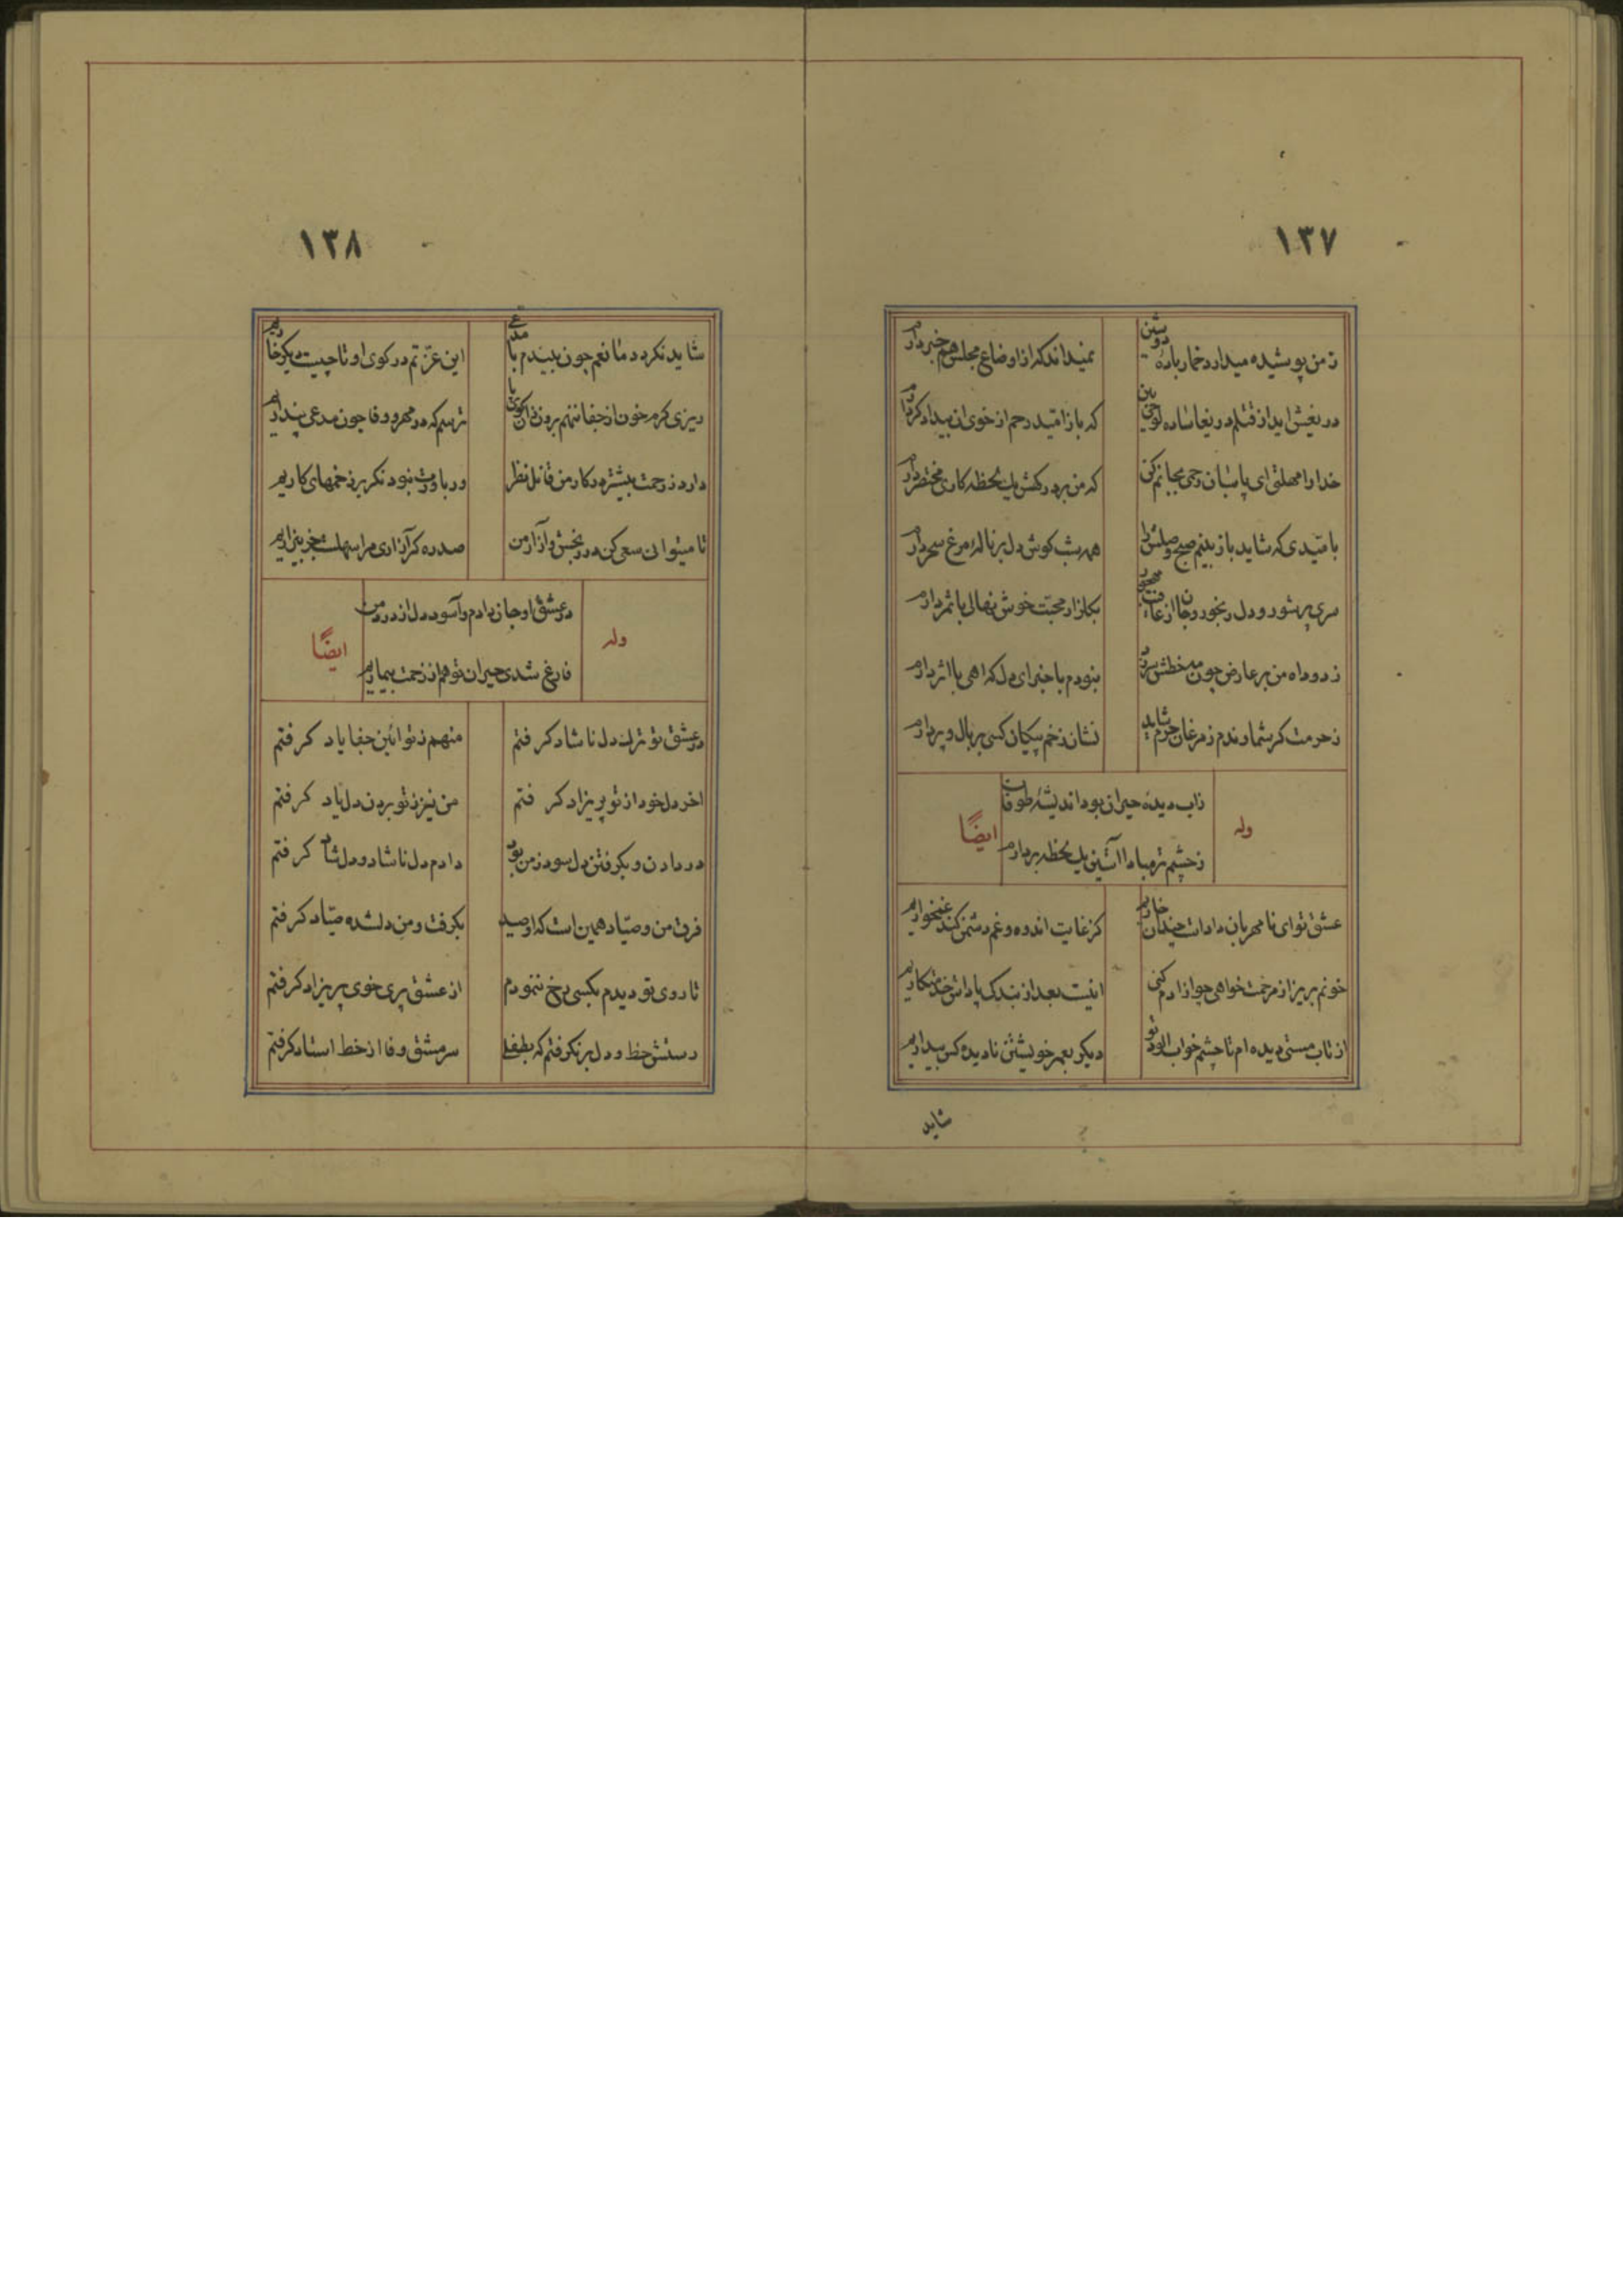 ۱۳۷
ز من پوشیده میدارد خمار بادهٔ دوشین نمیداند که از اوضاع مجلس هم خبر دارم
دریغش اید از قتلم دریغا ساده لوحی بین که باز امید رحم از خوی ان بیدادکر دارم
خدا را مهلتی ای پاسبان رحمی بجانم کن که من بر درکهش یک لحظه کاری مختصر دارم
بامیدی که شاید باز بینم صبح وصلش را همه شب کوش دل بر نالهٔ مرغ سحر دارم
سری پرشور و دل رنجور و جان از عافیت مهجور بکلزار محبت خوش نهالی با ثمر دارم
ز دود اه من بر عارض چون مه خطش سر زد نبودم با خبر ای دل که اهی با اثر دارم
ز حرمت کر شمارندم ز مرغان حرم شاید نشان زخم پیکان کسی بر بال و پر دارم
وله
زاب دیده حیران بود اندیشهٔ طوفان
ز چشم تر مبادا آستین یک لحظه بردارم
ایضاً
عشق تو ای نامهربان داد است چندان خاریم کز غایت اندوه و غم دشمن کند غمخواریم
خونم بریز از مرحمت خواهی چو ازادم کنی اینست بعد از بندکی پاداش خدمتکاریم
از تاب مستی دیده ام تا چشم خواب الود تو دیکر بعمر خویشتن نادیده کس بیداریم
شاید
۱۳۸
شاید نکردد مانعم چون بیندم با مدعی این عزتم در کوی او تا چیست دیکر خاریم
ریزی کرم خون از جفا ننهم برون زان کوی پا ترسم که در مهر و وفا چون مدعی پنداریم
دارد ز رحمت بیشتر در کار من قاتل نظر ور باورت نبود نکر بر زخمهای کاریم
تا میتوانی سعی کن در رنجش و آزار من صد ره کر آزاری مرا سهلست جز بیزاریم
وله
در عشق او جان دادم و آسود دل از درد من
فارغ شدی حیران تو هم از زحمت بیماریم
ایضاً
در عشق تو ترک دل ناشاد کرفتم منهم ز تو ائین جفا یاد کرفتم
اخر دل خود از تو پریزاد کرفتم من نیز ز تو بردن دل یاد کرفتم
در دادن و بکرفتن دل سود ز من بود دادم دل ناشاد و دل شاد کرفتم
فرق من و صیاد همین است که او صید بکرفت و من دلشده صیاد کرفتم
تا روی تو دیدم بکسی رخ ننمودم از عشق پری خوی پریزاد کرفتم
دستش خط و دل برنکرفتم که بطفلی سرمشق وفا از خط استاد کرفتم